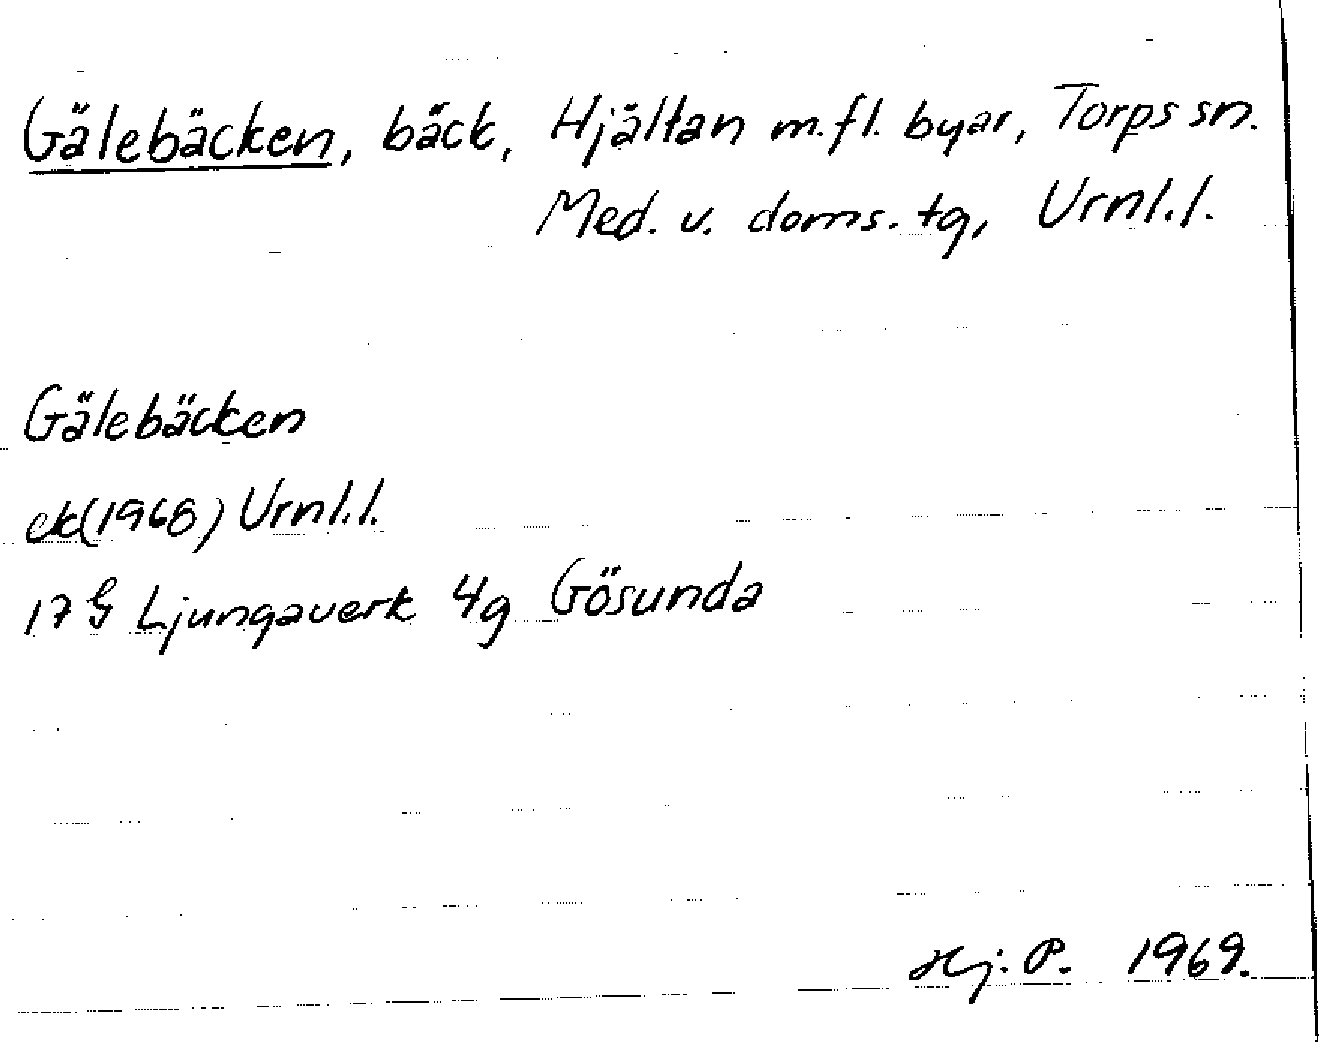 Gälebäcken, bäck, Hjältan m.fl. byar, Torps sn.
Med. v. doms. tg, Urnl.l.
Gälebäcken
ek(1968) Urnl.l.
17 G Ljungaverk 4g Gösunda
Hj. P. 1969.